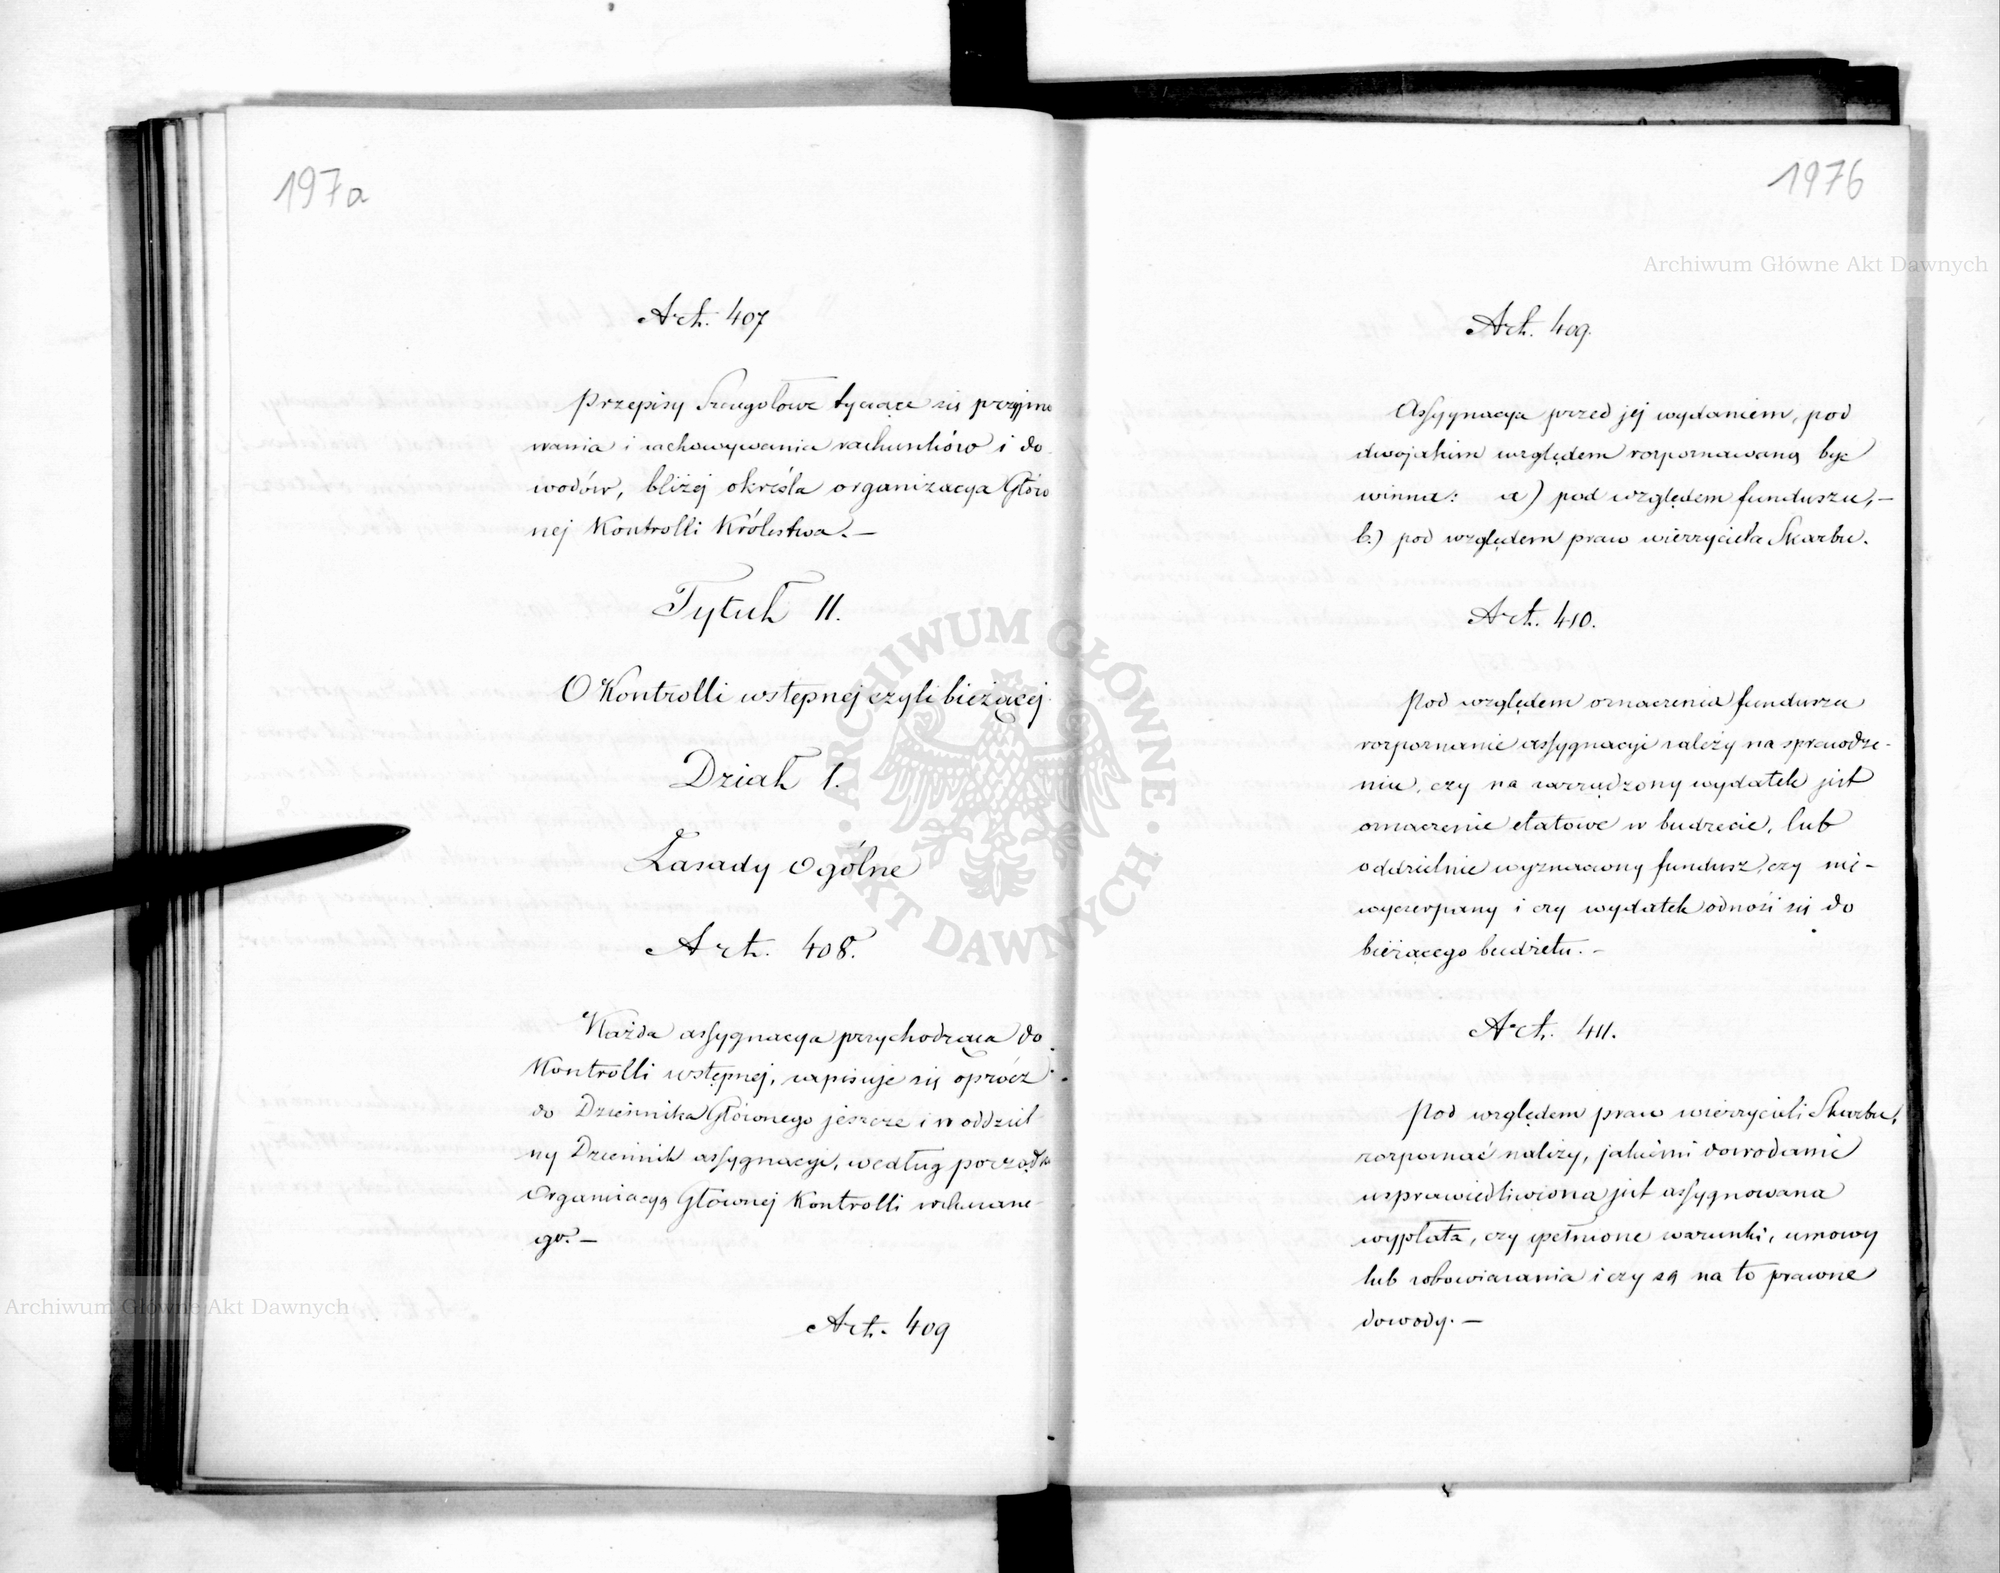 197a
Art. 407
Przepisy Szczegółowe tyczące się przyjmo
wania i zachowywania rachunków i do-
wodów, bliżej określa organizacya Głów
nej Kontrolli Królestwa. —
Tytuł II.
O Kontrolli wstępnej czyli bieżącej.
Dział I.
Zasady Ogólne
Art. 408.
Każda assygnacya przychodząca do
Kontrolli wstępnej, zapisuje się oprócz
do Dziennika Głównego jeszcze i w oddziel-
ny Dziennik assygnacyi, według porządku
Organizacyą Głównej Kontrolli wskazane-
go. —
Art. 409
197b
Art. 409.
Assygnacya przed jej wydaniem, pod
dwojakim względem rozpoznawaną być
winna: a) pod względem funduszu, —
b.) pod względem praw wierzyciela Skarbu.
Art. 410.
Pod względem oznaczenia funduszu
rozpoznanie assygnacyi zależy na sprawdze-
niu, czy na zarządzony wydatek jest
oznaczenie etatowe w budżecie, lub
oddzielnie wyznaczony fundusz, czy nie-
wyczerpany i czy wydatek odnosi się do
bieżącego budżetu. —
Art. 411.
Pod względem praw wierzycieli Skarbu,
rozpoznać należy, jakiemi dowodami
usprawiedliwiona jest assygnowana
wypłata, czy spełnione warunki, umowy
lub zobowiązania i czy są na to prawne
dowody. —
Archiwum Główne Akt Dawnych
Archiwum Główne Akt Dawnych
ARCHIWUM GŁÓWNE · AKT DAWNYCH ·